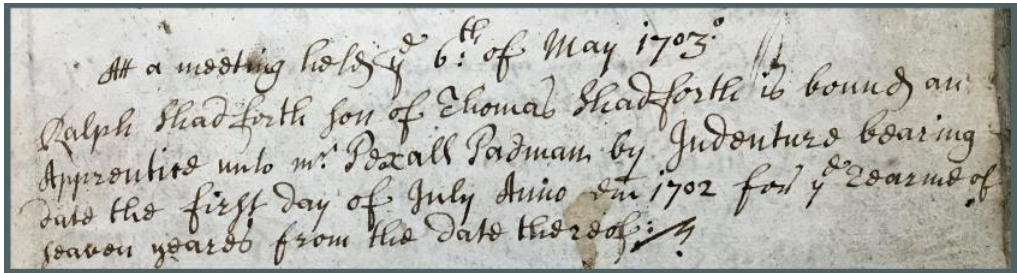 Att a meeting held ye 6:th of May 1703
Ralph Shadforth son of Thomas Shadforth is bound an
Apprentice unto mr. Pexall Padman by Indenture bearing
date the first day of July Anno Dm 1702 for ye Tearme of
seaven yeares from the date thereof: